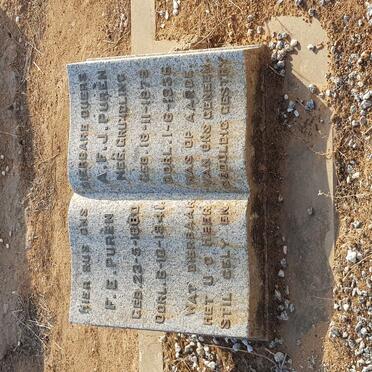 HIER RUS ONS
F. E. PUREN
GEB. 23-5-1880
OORL. 6-10-1941
WAT DIERBAAR
HET U O HEER
STIL GELY EN
DIERBARE OUERS
A. F. J. PUREN
NEE GRUNDLING
GEB. 19-11-1878
OORL. 11-6-1966
WAS OP AARDE
VAN ONS GENEEM
GEDULDIG GESTRY